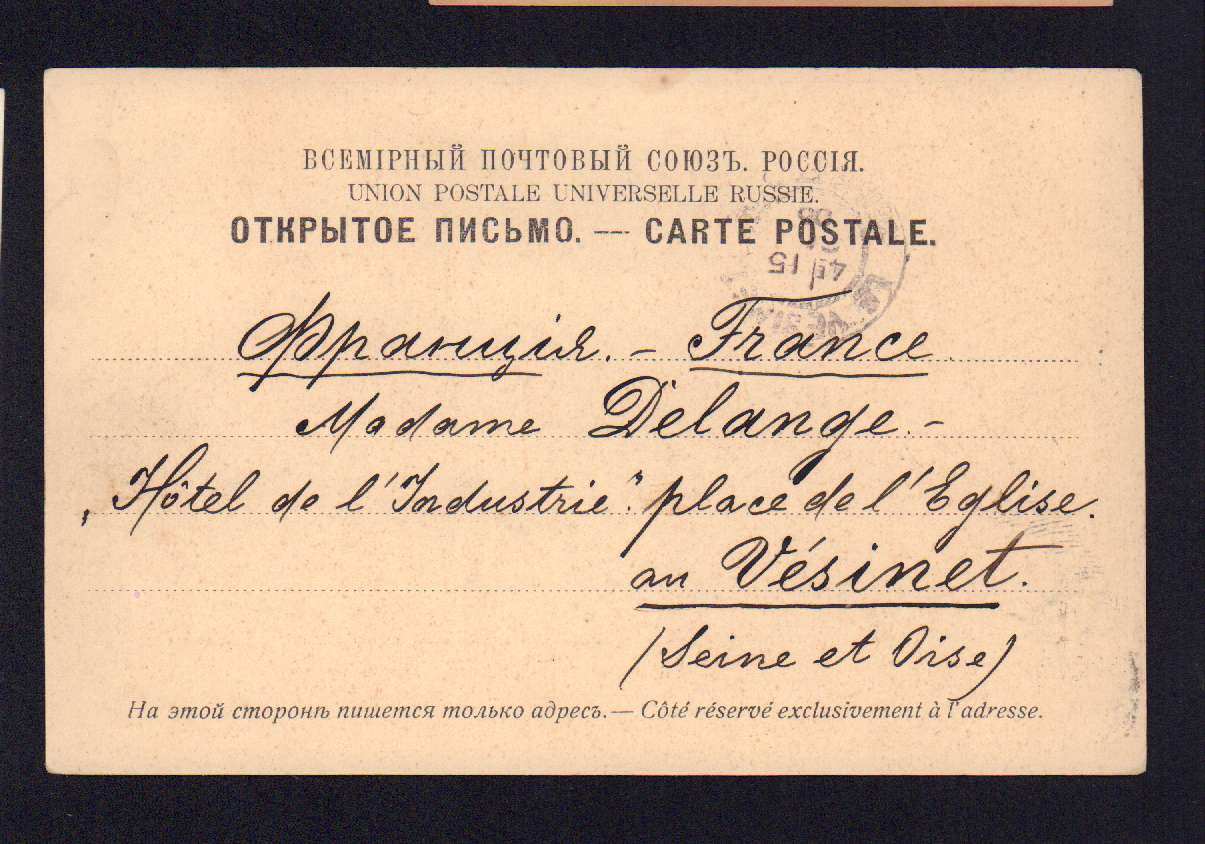 ВСЕМІРНЫЙ ПОЧТОВЫЙ СОЮЗЪ. РОССІЯ.
UNION POSTALE UNIVERSELLE RUSSIE.
ОТКРЫТОЕ ПИСЬМО. — CARTE POSTALE.
Франція. – France
Madame Delange. –
„Hôtel de l'Industrie". place de l'Eglise.
au Vésinet.
(Seine et Oise)
На этой сторонѣ пишется только адресъ. — Côté réservé exclusivement à l'adresse.
4E 15
LE VESIN